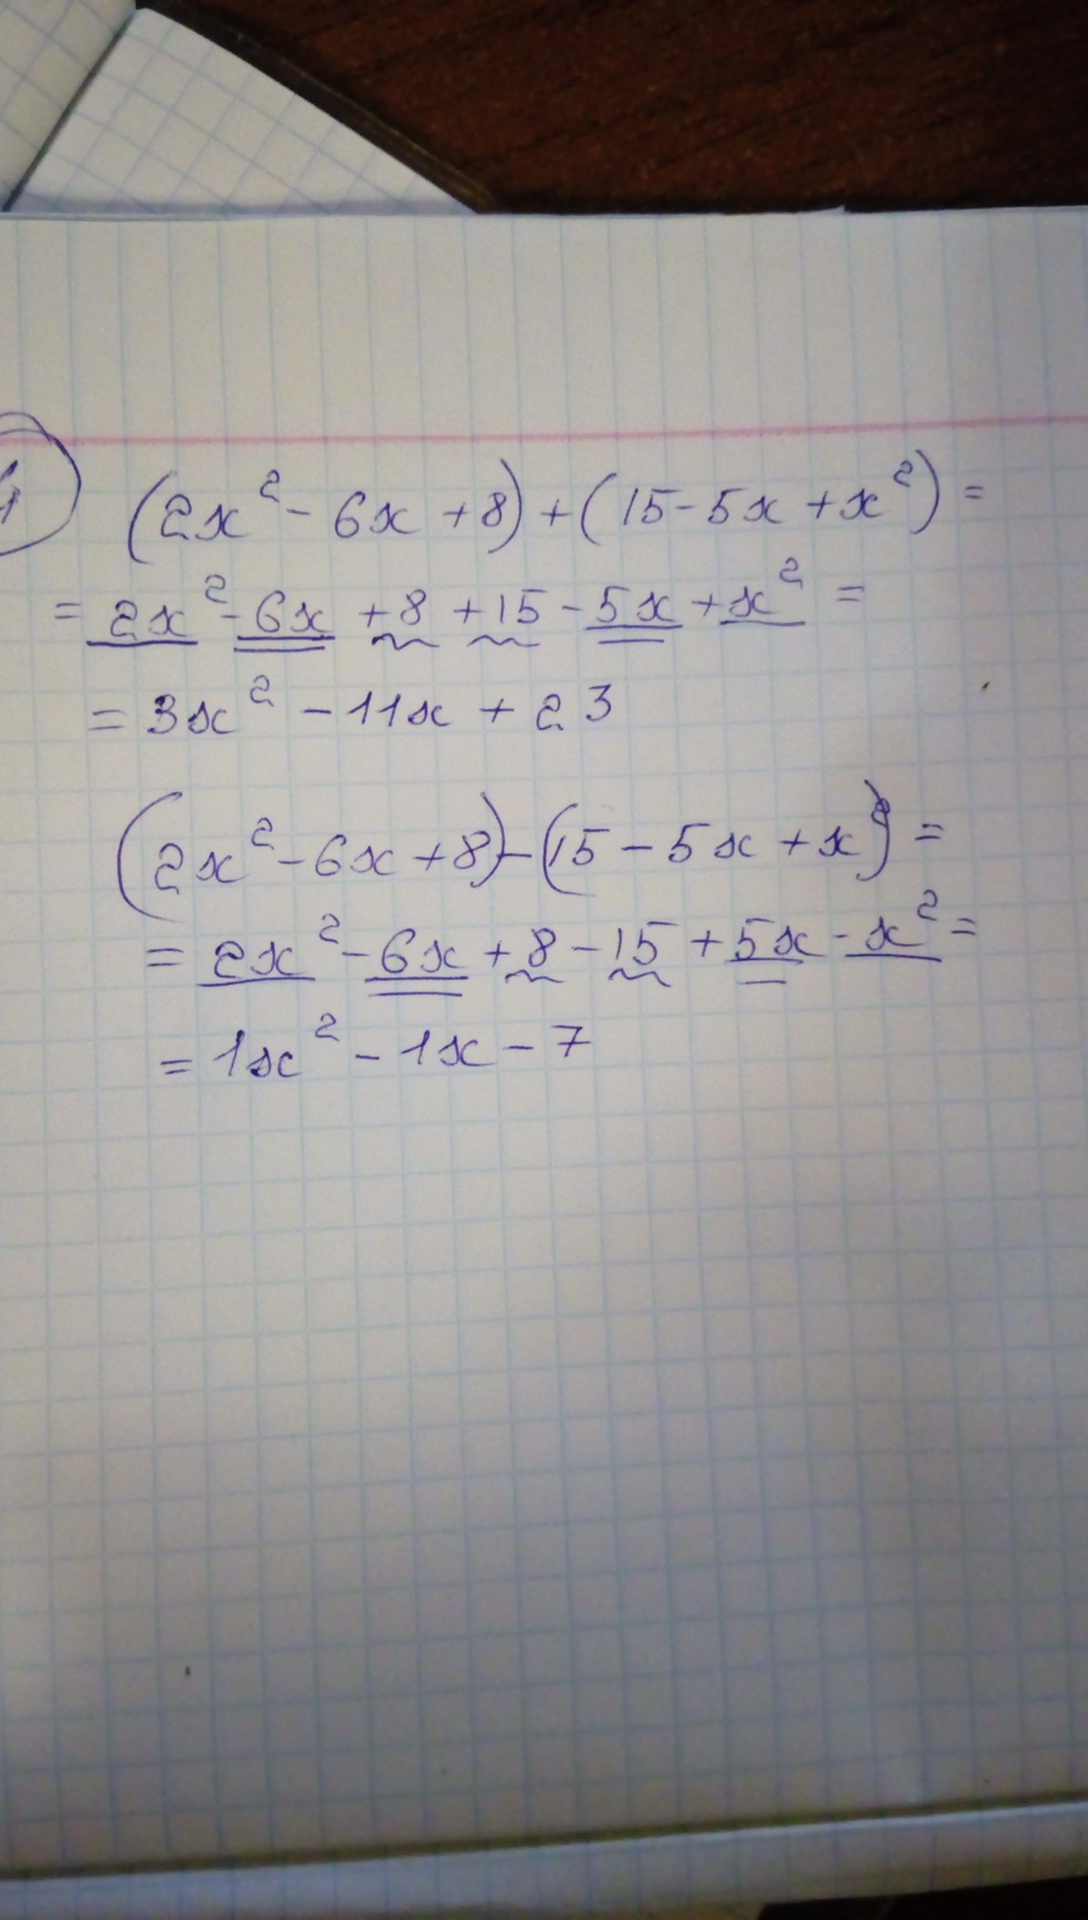 4
(2x² - 6x + 8) + (15 - 5x + x²) =
= 2x² - 6x + 8 + 15 - 5x + x² =
= 3x² - 11x + 23
(2x² - 6x + 8) - (15 - 5x + x²) =
= 2x² - 6x + 8 - 15 + 5x - x² =
= 1x² - 1x - 7